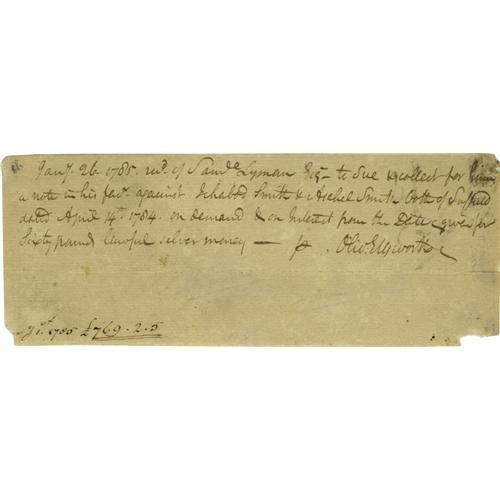 Jany. 26 1785. recd. of Saml. Lyman Esq - to Sue & collect for him
a note in his favr. against Ichabod Smith & Asahel Smith Both of Suffield
dated April 14th. 1784. on demand & on Interest from the Date & given for
Sixty pounds lawful silver money — pr Olivr. Ellsworth
1785 £769.2.5